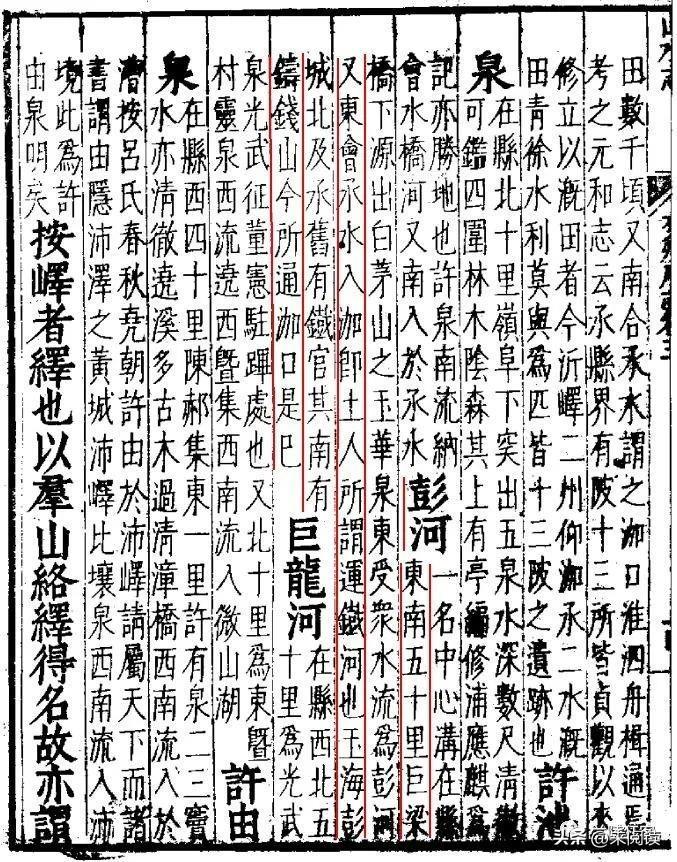 田數千頃又南合承水謂之泇口淮泗舟楫通焉
考之元和志云承縣界有陂十三所皆貞觀以來
修立以漑田者今沂嶧二州仰泇承二水漑
田青徐水利莫與為匹皆十三陂之遺跡也
許池
泉
在縣北十里嶺阜下突出五泉水深數尺清澈
可鑑四圍林木陰森其上有亭編修浦應麒為
記亦勝地也許泉南流納
會水橋河又南入於承水
彭河
一名中心溝在縣
東南五十里巨梁
橋下源出白茅山之玉華泉東受衆水流為彭河
又東會承水入泇卽土人所謂運鐵河也玉海彭
城北及承舊有鐵官其南有
鑄錢山今所通泇口是巴
巨龍河
在縣西北五
十里為光武
泉光武征董憲駐蹕處也又北十里為東暨
村靈泉西流遶西暨集西南流入微山湖
許由
泉
在縣西四十里陳郝集東一里許有泉二三竇
水亦清徹遶溪多古木過清漳橋西南流入於
漕按呂氏春秋堯朝許由於沛嶧請屬天下而諸
書謂由隱沛澤之黃城沛嶧比壤泉西南流入沛
境此為許
由泉明矣
按嶧者繹也以羣山絡繹得名故亦謂